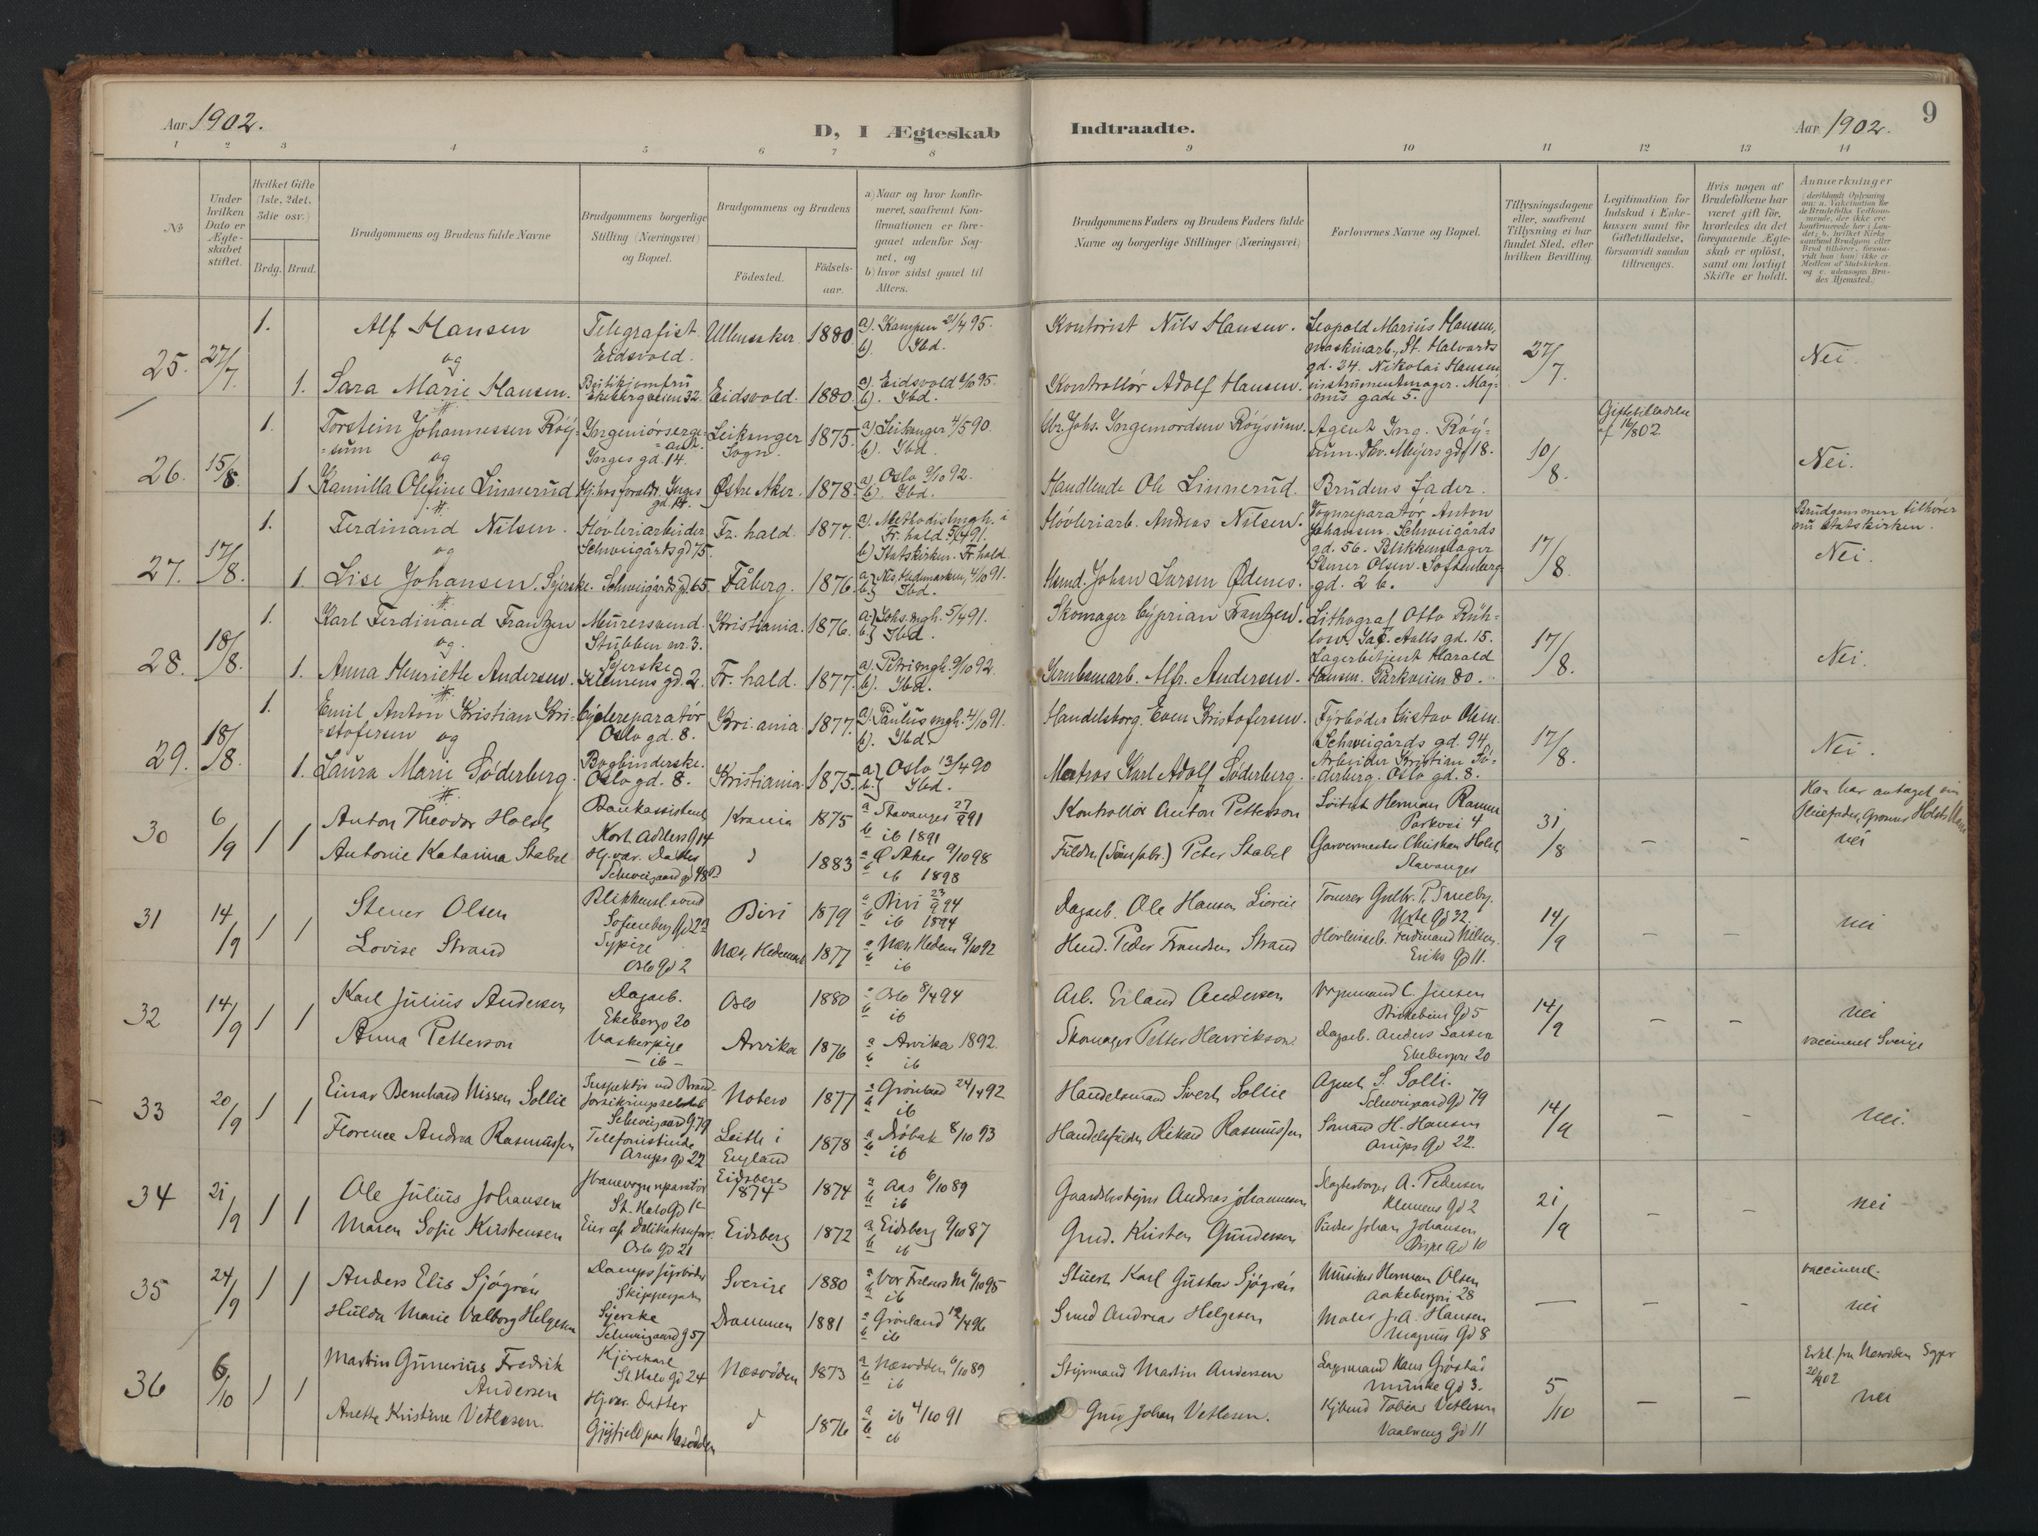 Aar 1902.
D, I Ægteskab
Indtraadte.
Aar 1902.
9
1 2 3 4 5 6 7 8 9 10 11 12 13 14
No
Under hvilken Dato er Ægteskabet stiftet.
Hvilket Gifte (1ste, 2det, 3die osv.)
Brdg. Brud.
Brudgommens og Brudens fulde Navne
Brudgommens borgerlige Stilling (Næringsvei) og Bopæl.
Brudgommens og Brudens
Fødested. Fødselsaar.
a) Naar og hvor konfirmeret, saafremt Konfirmationen er foregaaet udenfor Sognet, og
b) hvor sidst gaaet til Alters.
Brudgommens Faders og Brudens Faders fulde Navne og borgerlige Stillinger (Næringsvei)
Forlovernes Navne og Bopæl.
Tillysningsdagene eller, saafremt Tillysning ei har fundet Sted, efter hvilken Bevilling.
Legitimation for Indskud i Enkekassen samt for Giftetilladelse, forsaavidt saadan tiltrænges.
Hvis nogen af Brudefolkene har været gift før, hvorledes da det foregaaende Ægteskab er opløst, samt om lovligt Skifte er holdt.
Anmærkninger
25. 27/7
1. Alf Hansen
Telegrafist Eidsvold.
Ullensaker 1880
a). Kampen 21/4 95.
b). Ibd.
Kontorist Nils Hansen.
Leopold Marius Hansen,
maskinarb., St. Halvards
gd. 34. Nikolai Hansen
instrumentmager. Magnus gade 5.
27/7
Nei.
og
1. Sara Marie Hansen
Ekebergveien 32.
Eidsvold. 1880.
a). Eidsvold 6/10 95.
b). Ibd.
Kontrollør Adolf Hansen.
26. 15/8
1. Torstein Johannessen Røysum
Inges gd. 14.
Leikanger Sogn. 1875.
a) Leikanger 4/5 90.
b). Ibd.
Johs. Ingemordsen Røysum.
Agent Ing. Røysum. Thv. Meyers gd 18.
10/8
Giftetilladelse af 16/8 02.
Nei.
og
1 Kamilla Olefine Linnerud
Hj. hos foraldr. Inges gd. 14.
Østre Aker. 1878.
a) Oslo 9/10 92.
b). Ibd.
Handlende Ole Linnerud.
Brudens fader.
27. 17/8
1. Ferdinand Nilsen.
Høvleriarbeider
Schweigårdsgd 75.
Fr. hald. 1877.
a) Methodistmgh. i
Fr. hald 5/4 91.
b) Statskirken. Fr. hald.
Høvleriarb. Andreas Nilsen.
Vognreparatør Anton
Johansen. Schweigårds
gd. 56. Blikkenslager
Stener Olsen. Sofienberg
gd. 2 b.
17/8.
Brudgommen tilhører
nu statskirken.
Nei.
og
1. Lise Johansen.
Syerske. Schweigårdsgd. 65.
Fåberg. 1876
a) Nes, Hedemarken, 4/10 91.
b) Ibd.
Hsmd. Johan Larsen Ødenes.
28. 18/8.
1. Karl Ferdinand Frantzen
Murersvend.
Stubben nr. 3.
Kristiania. 1876.
a) Johs. mgh. 5/4 91.
b) Ibd.
Skomager Cyprian Frantzen.
Lithograf Otto Rühlow. Jac. Aalls gd. 15.
Lagerbetjent Harald
Hansen. Parkveien 80.
17/8.
Nei.
og.
1. Anna Henriette Andersen.
Syerske
Klemens gd. 2.
Fr. hald. 1877.
a) Petrimgh. 9/10 92.
b). Ibd.
Grubemarb. Alfr. Andersen.
29. 18/8.
1. Emil Anton Kristian Kristofersen og
Cyclereparatør
Oslo gd. 8.
Kri-ania. 1877.
a) Paulus mgh. 4/10 91.
b). Ibd.
Handelsborg. Even Kristofersen.
Fyrbøder Gustav Olsen
Schweigårds gd. 94.
Arbeider Kristian Søderberg. Oslo gd. 8.
17/8.
Nei.
1. Laura Marie Søderberg.
Bogbinderske.
Oslo gd. 8.
Kristiania 1875.
a) Oslo 13/4 90
b) Ibd.
Matros Karl Adolf Søderberg.
30 6/9 1 1
Anton Theodor Holst
Bankassistent
Kort Adelers G 14
Krania 1875
a Stavanger 27/9 91
b ib 1891
Kontrollør Anton Petterson
Herman
Parkvei 4
31/8
Han har antaget sin
Holsts Navn
nei
Antonie Katarina Stabel
Hj. vær. Datter
Schweigaard gd 48 B
d 1883
a Ø Aker 9/10 98
b ib 1898
Peter Stabel
Garvermester Christian Holst
Stavanger
31 14/9 1 1
Stener Olsen
Blikkensl.svend
Sofienberg Gd 22
Biri 1879
a Biri 23/9 94
b ib 1894
Dagarb. Ole Hansen
Urte Gd 32.
14/9
nei
Lovise Strand
Sypige
Oslo Gd 2
Næs, Hedemark 1877
a Næs Hedem 9/10 92
b ib
Hmd. Peder Frandsen Strand
Høvleriarb. Ferdinand Nilsen.
Eriks Gd 11.
32 14/9 1 1
Karl Julius Andersen
Dagarb.
Ekebergv 20
Oslo 1880
a Oslo 8/4 94
b ib
Arb. Erland Andersen
Vognmand C. Jensen
Birkebein Gd 5
14/9
nei
vaccineret Sverige
Anna Petterson
Vaskerpige
- ib -
Arvika 1876
a Arvika 1892.
b ib
Skomager Petter Henrikson
Dagarb. Anders Larsen
Ekebergvei 20
33 20/9 1 1
Einar Bernhard Nissen Sollie
Inspektør ved Brand-
forsikringsselskab
Schweigaard G 79
Noterø 1877
a Grønland 24/4 92
b ib
Handelsmand Sivert Sollie
Agent S. Solli.
Schweigaard Gd 79
14/9
nei.
Florence Andrea Rasmussen
Telefonistinde
Arups Gd 22
Leith i England 1878
a Drøbak 8/10 93
b ib
Handelsfuldm Rikard Rasmussen
Sømand H. Hansen
Arups Gd 22.
34 21/9 1 1
Ole Julius Johansen
St. Halv Gd 12
Eidsberg 1874 1874
a Aas 6/10 89
b ib
Gaardsbestyrer Andreas Johannesen
A. Pedersen
Klemens Gd 2
21/9
nei
Maren Sofie Kristensen
Eier af Delikatesseforr.
Oslo Gd 21
Eidsberg 1872
a Eidsberg 9/10 87
b ib
Grmd. Kristen Gundersen
Johan Johansen
Bispe Gd 10
35 24/9 1 1
Anders Elis Sjøgrén
Dampsfyrbøder
Skippergaden
Sverige 1880
a Vor Frelsers M 6/10 95
b ib
Stuert Karl Gustav Sjögrén
Musiker Herman Olsen
Aakebergvei 28
vaccineret.
nei
Hulda Marie Valborg Helgesen
Syerske
Schweigaard G 57
Drammen 1881
a Grønland 12/4 96
b ib
Smed Andreas Helgesen
Maler J. A. Hansen
Magnus Gd 8
36 6/10 1 1
Martin Gunerius Fredrik Andersen
Kjørekarl
St. Halv Gd 24
Næsodden 1873
a Næsodden 6/10 89
b ib
Styrmand Martin Andersen
Hans Grøstad
Munke Gd 3.
5/10
Erkl. fra Næsodden
20/9 02
nei
Anette Kristine Vetlesen.
Hjvær. Datter
Næsodden
d 1876
a ib 4/10 91
b ib
Johan Vetlesen.
Tobias Vetlesen
Vaalereng Gd 11